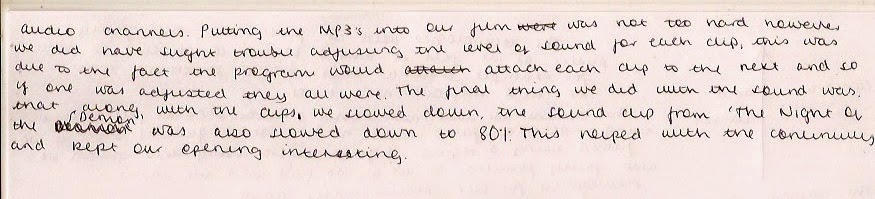 audio channels. Putting the MP3's into our film was not too hard however
we did have slight trouble adjusting the level of sound for each clip, this was
due to the fact the program would attach each clip to the next and so
if one was adjusted they all were. The final thing we did with the sound was,
that along, with the clips, we slowed down, the sound clip from 'The Night of
the Demon' was also slowed down to 80%. This helped with the continuity
and kept our opening interesting.